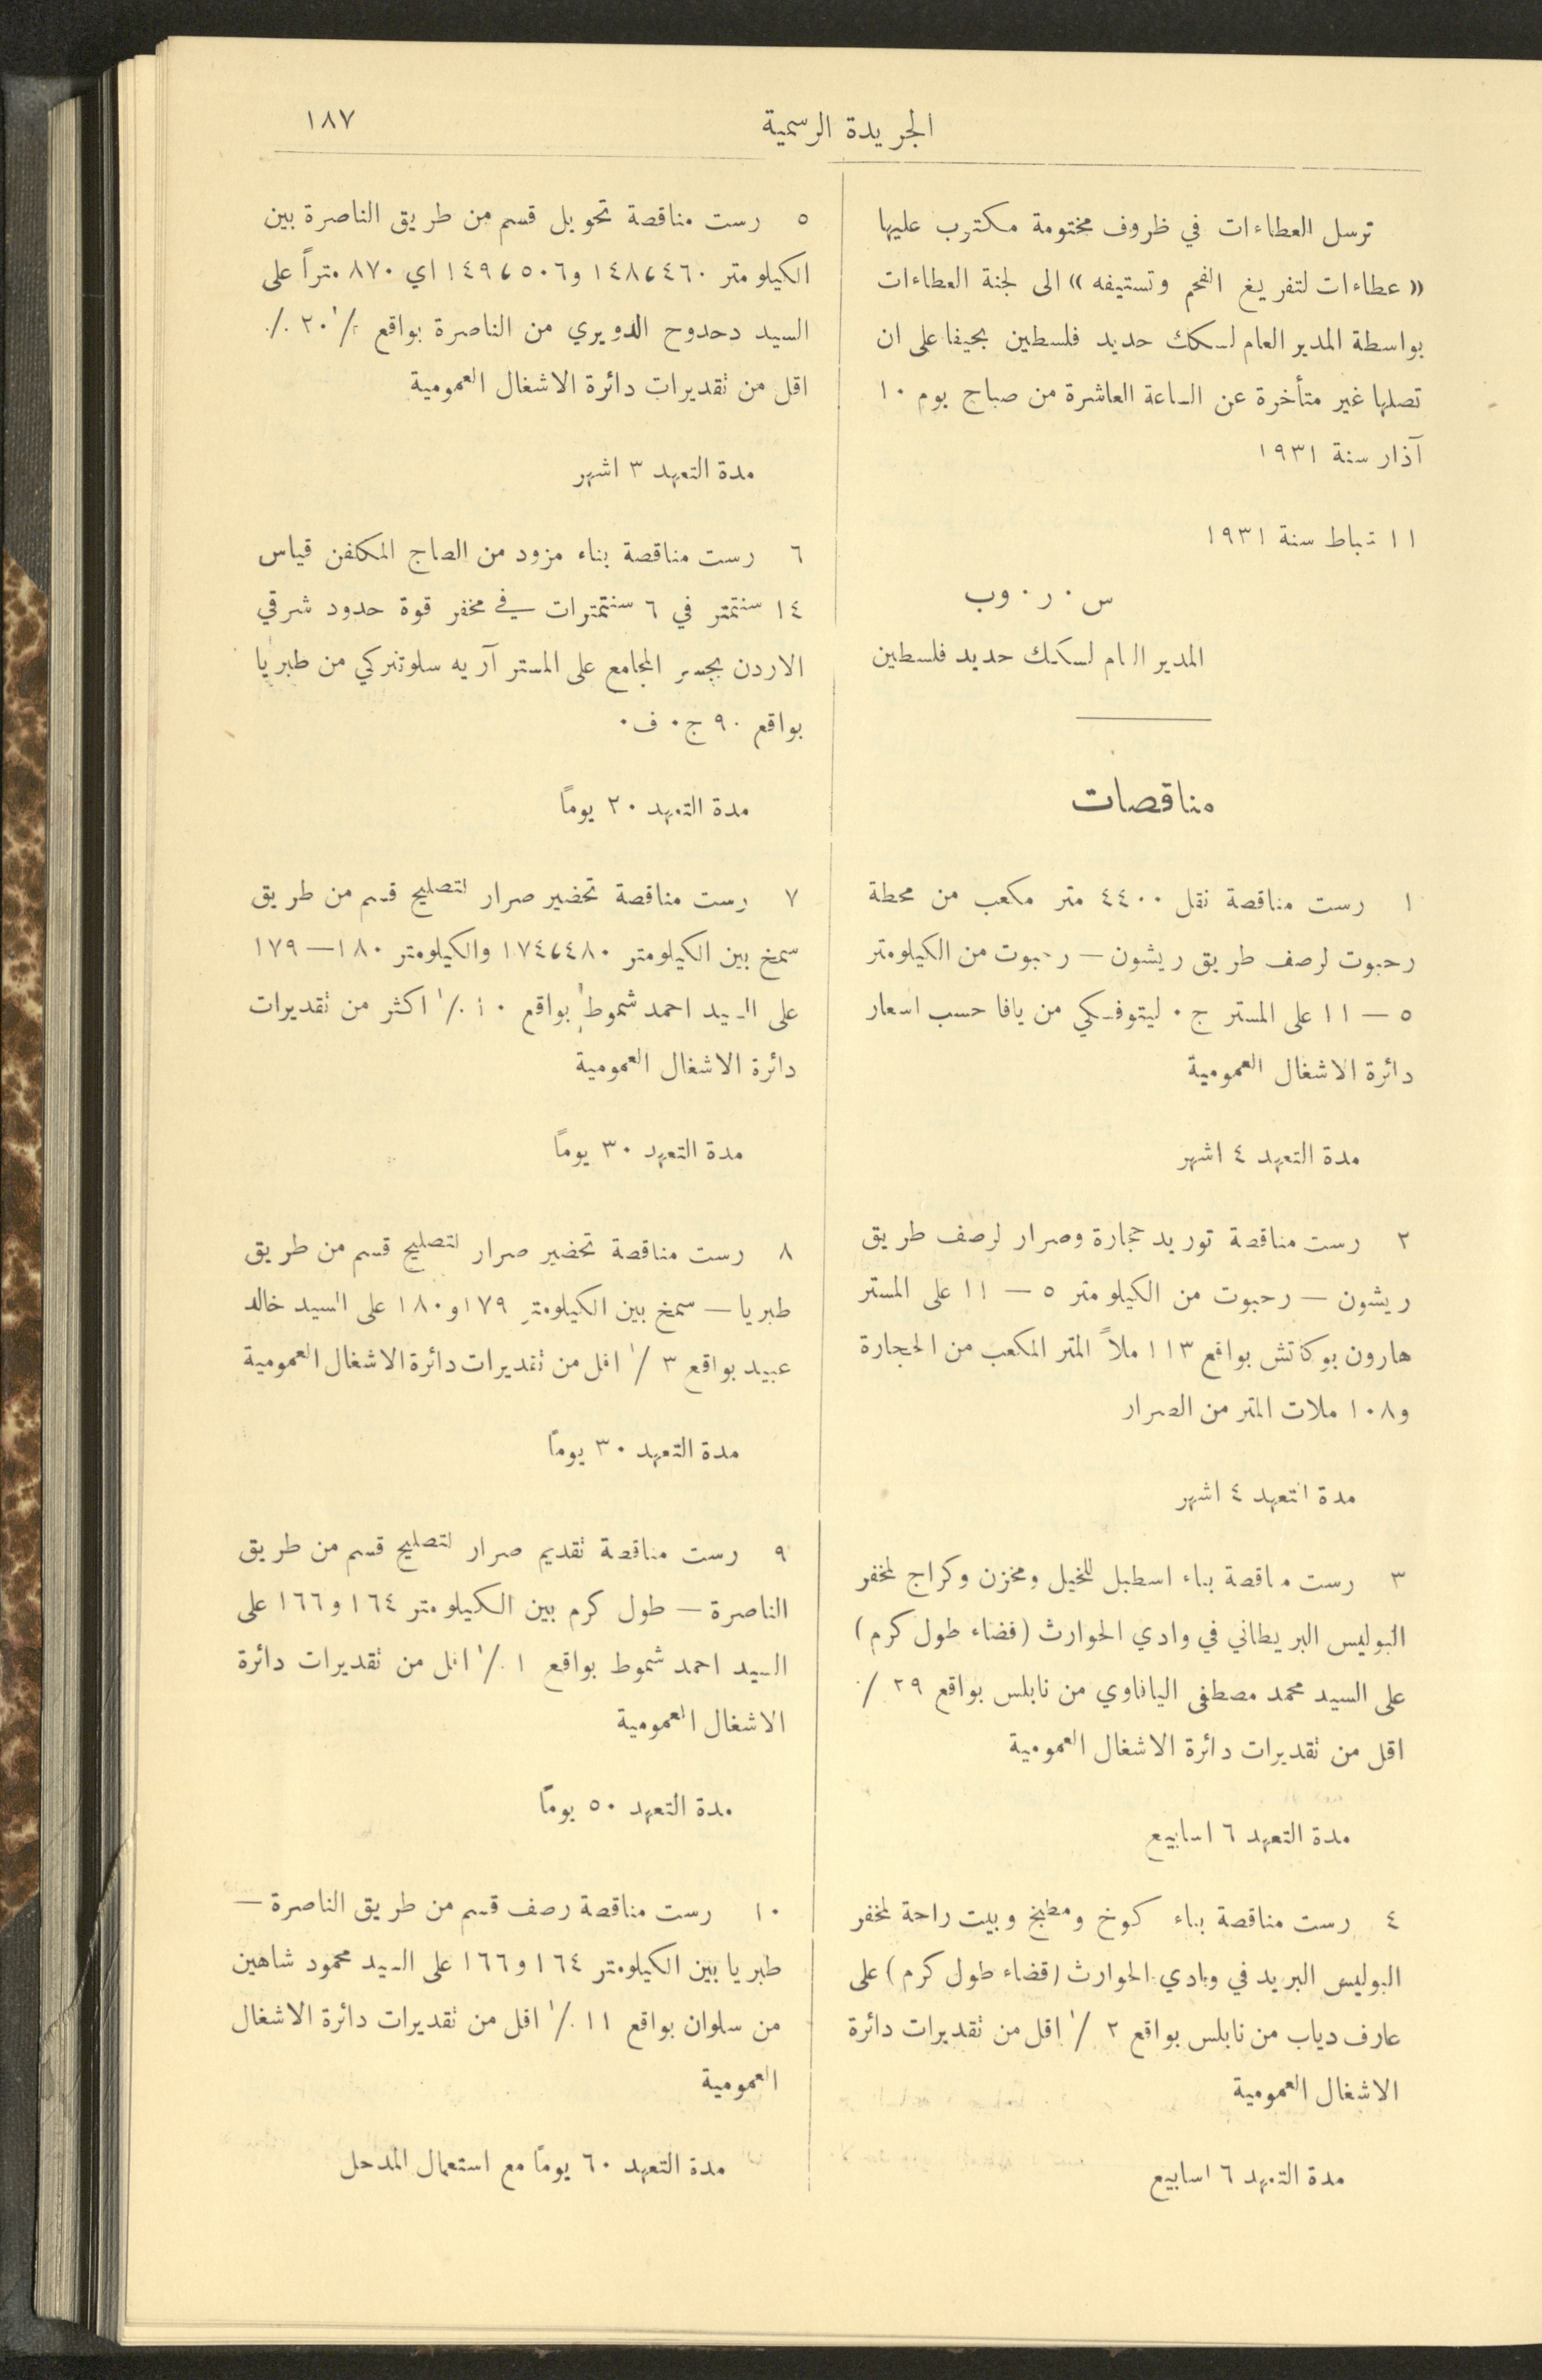 الجريدة الرسمية
١٨٧
ترسل العطاءات في ظروف مختومة مكتوب عليها
«عطاءات لتفريغ الفحم وتستيفه» الى لجنة العطاءات
بواسطة المدير العام لسكك حديد فلسطين بحيفا على ان
تصلها غير متأخرة عن الساعة العاشرة من صباح يوم ١٠
آذار سنة ١٩٣١
١١ شباط سنة ١٩٣١
س٠ ر٠ وب
المدير العام لسكك حديد فلسطين
مناقصات
١ رست مناقصة نقل ٤٤٠٠ متر مكعب من محطة
رحبوت لرصف طريق ريشون — رحبوت من الكيلومتر
٥ — ١١ على المستر ج٠ ليتوفسكي من يافا حسب اسعار
دائرة الاشغال العمومية
مدة التعهد ٤ اشهر
٢ رست مناقصة توريد حجارة وصرار لرصف طريق
ريشون — رحبوت من الكيلو متر ٥ — ١١ على المستر
هارون بوكاتش بواقع ١١٣ ملاً المتر المكعب من الحجارة
و١٠٨ ملات المتر من الصرار
مدة التعهد ٤ اشهر
٣ رست مناقصة بناء اسطبل للخيل ومخزن وكراج لمخفر
البوليس البريطاني في وادي الحوارث (قضاء طول كرم)
على السيد محمد مصطفى اليافاوي من نابلس بواقع ٢٩ ٪
اقل من تقديرات دائرة الاشغال العمومية
مدة التعهد ٦ اسابيع
٤ رست مناقصة بناء كوخ ومطبخ وبيت راحة لمخفر
البوليس البريد في وادي الحوارث (قضاء طول كرم) على
عارف دياب من نابلس بواقع ٢ ٪ اقل من تقديرات دائرة
الاشغال العمومية
مدة التعهد ٦ اسابيع
٥ رست مناقصة تحويل قسم من طريق الناصرة بين
الكيلو متر ١٤٨،٤٦٠ و١٤٩،٥٠٦ اي ٨٧٠ متراً على
السيد دحدوح الدويري من الناصرة بواقع ٢٠ ٪
اقل من تقديرات دائرة الاشغال العمومية
مدة التعهد ٣ اشهر
٦ رست مناقصة بناء مزود من الصاج المكلفن قياس
١٤ سنتمتر في ٦ سنتمترات في مخفر قوة حدود شرقي
الاردن بجسر المجامع على المستر آريه سلوتنركي من طبريا
بواقع ٩٠ ج٠ ف٠
مدة التعهد ٢٠ يوماً
٧ رست مناقصة تحضير صرار لتصليح قسم من طريق
سمخ بين الكيلومتر ١٧٤،٤٨٠ والكيلومتر ١٨٠—١٧٩
على السيد احمد شموط بواقع ١٠ ٪ اكثر من تقديرات
دائرة الاشغال العمومية
مدة التعهد ٣٠ يوماً
٨ رست مناقصة تحضير صرار لتصليح قسم من طريق
طبريا — سمخ بين الكيلومتر ١٧٩ و١٨٠ على السيد خالد
عبيد بواقع ٣ ٪ اقل من تقديرات دائرة الاشغال العمومية
مدة التعهد ٣٠ يوماً
٩ رست مناقصة تقديم صرار لتصليح قسم من طريق
الناصرة — طول كرم بين الكيلو متر ١٦٤ و١٦٦ على
السيد احمد شموط بواقع ١ ٪ اقل من تقديرات دائرة
الاشغال العمومية
مدة التعهد ٥٠ يوماً
١٠ رست مناقصة رصف قسم من طريق الناصرة —
طبريا بين الكيلومتر ١٦٤ و١٦٦ على السيد محمود شاهين
من سلوان بواقع ١١ ٪ اقل من تقديرات دائرة الاشغال
العمومية
مدة التعهد ٦٠ يوماً مع استعمال المدحل